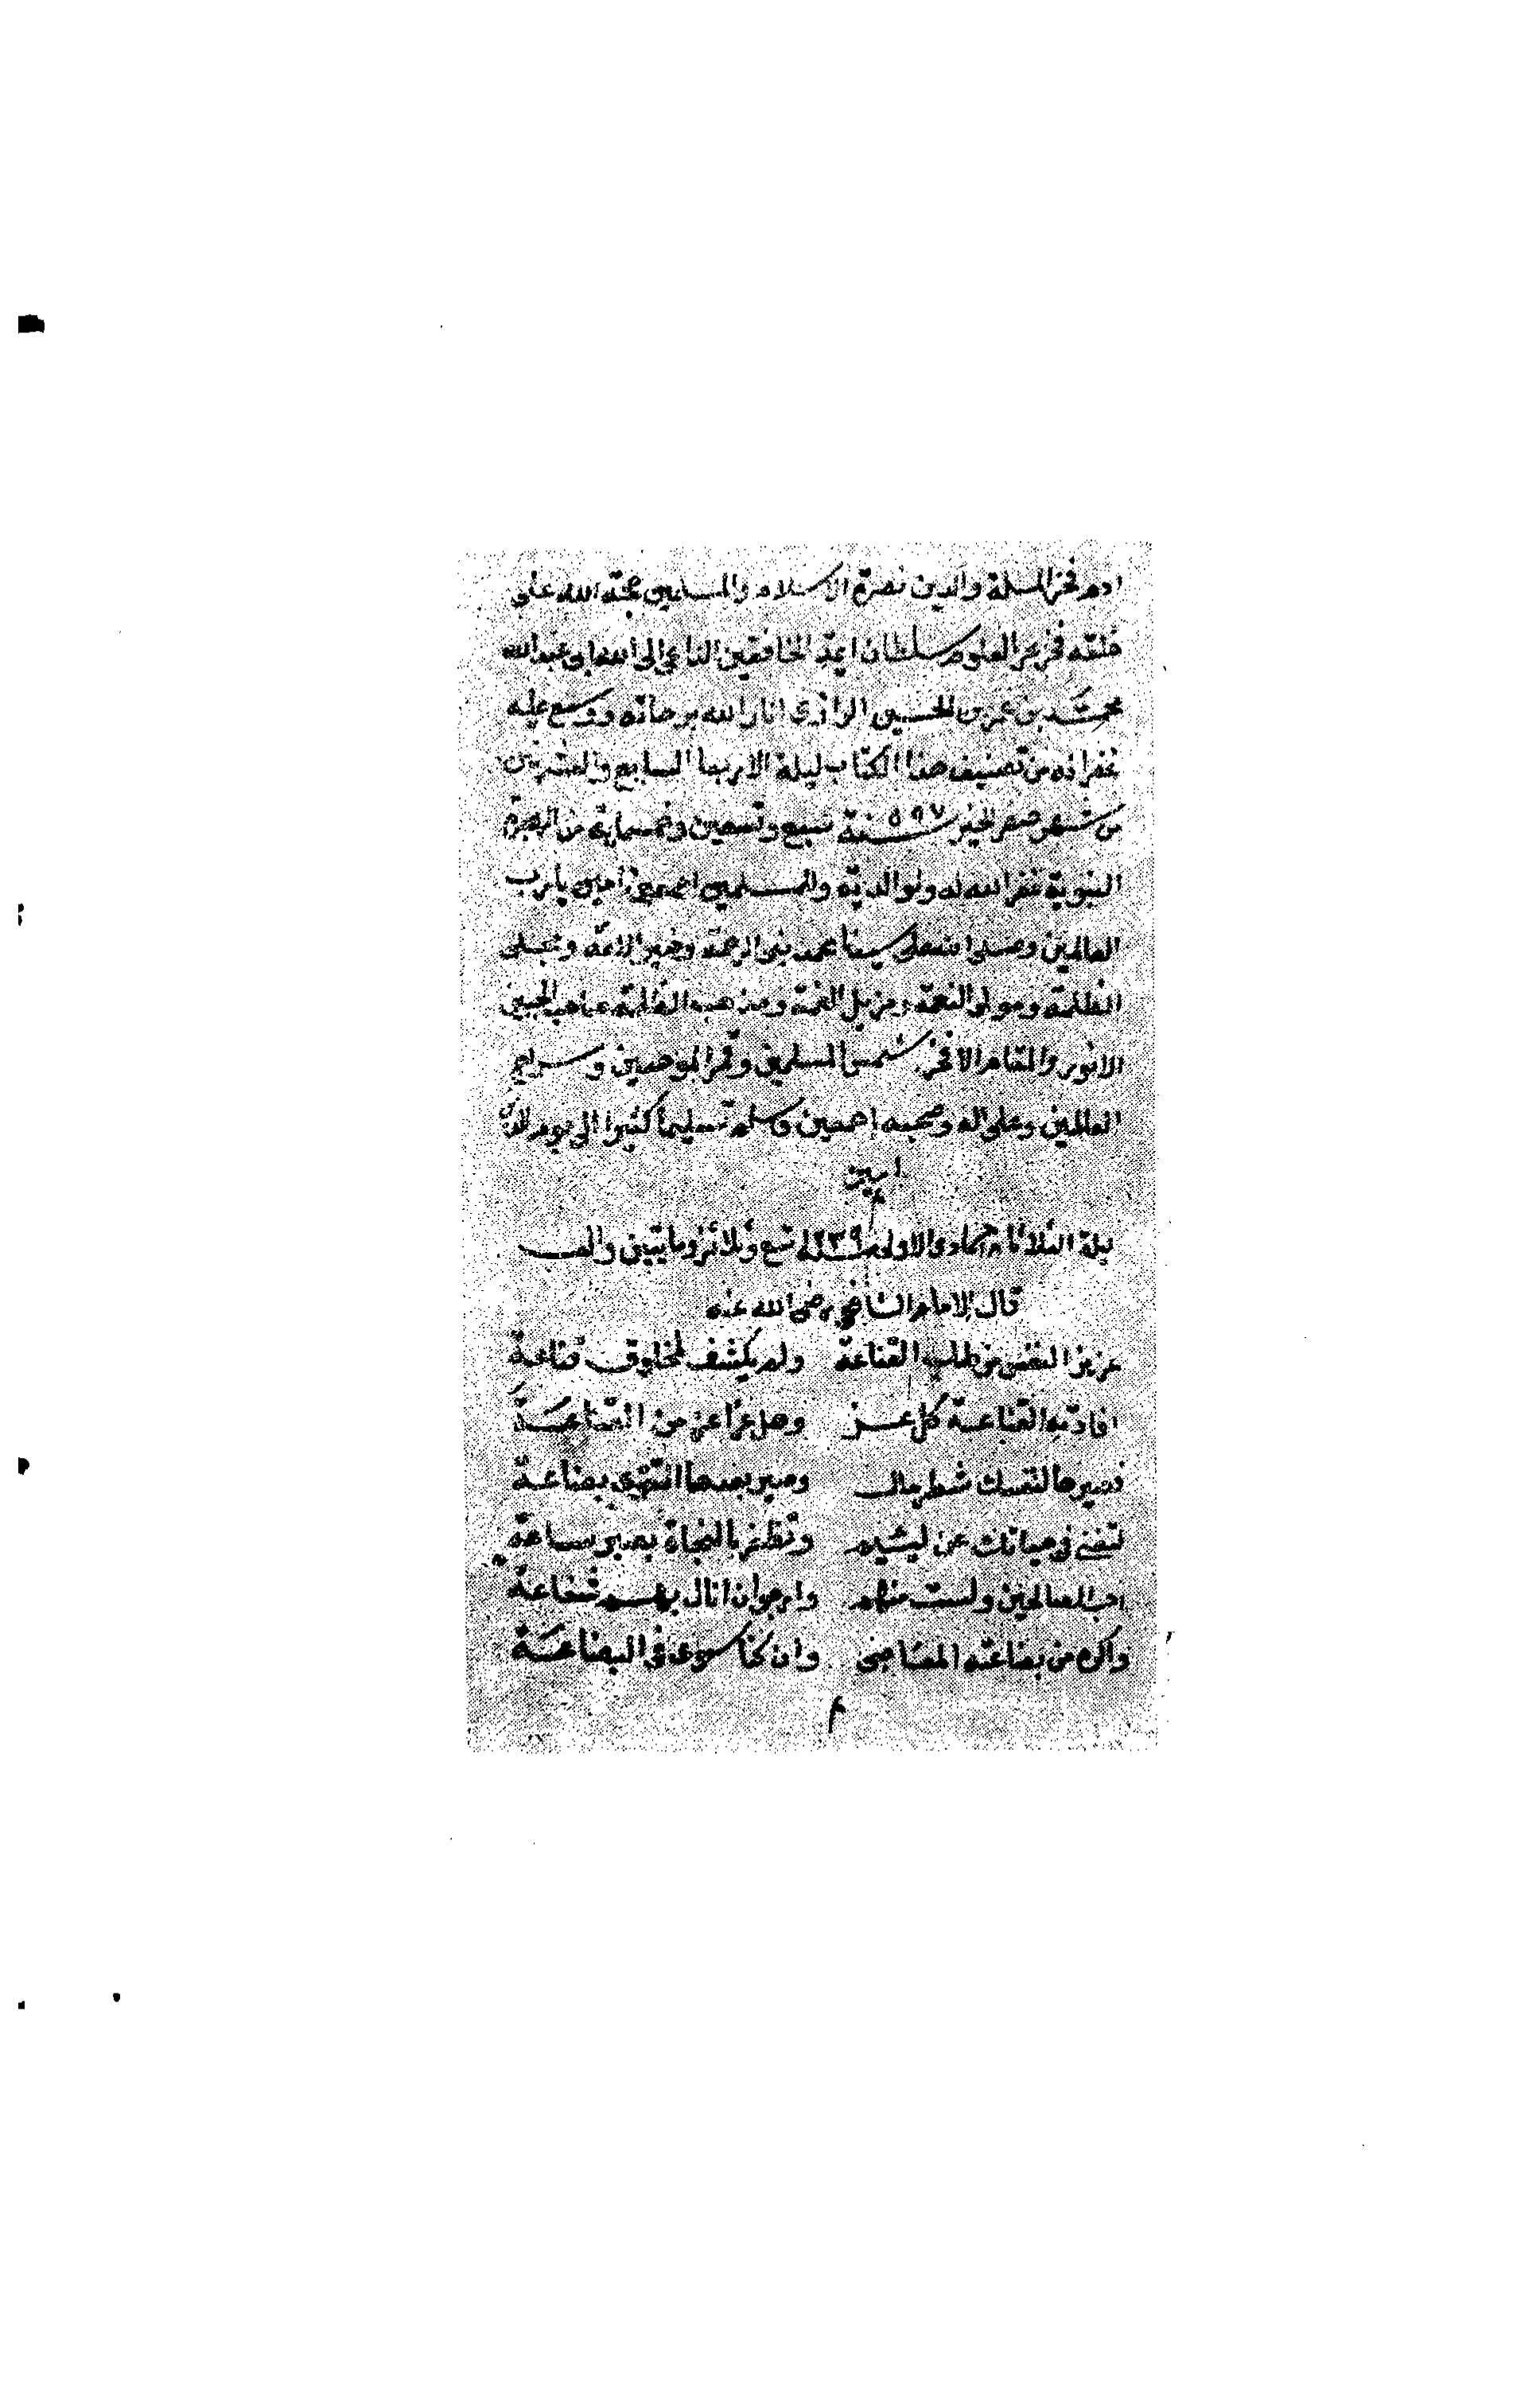 ادم فخر الملة والدين نصرة الاسلام والمسلمين حجة الله على
خلقه فخر بحر العلوم سلطان ايمة الخافقين الداعي الى الله ابى عبد الله
محمد بن عمر بن الحسين الرازي انار الله برهانه ووسع عليه
غفرانه من تصنيف هذا الكتاب ليلة الاربعا السابع والعشرين
من شهر صفر الخير ٥٩٧ سنة سبع وتسعين وخمسماية من الهجرة
النبوية غفر الله له ولوالديه والمسلمين اجمعين امين يا رب
العالمين وصلى الله على سيدنا محمد نبى الرحمة وخير الامة ومجلى
الظلمة ومولى النعمة ومزيل الغمة ومذهب الظلمة صاحب الجبين
الانور والمقام الافخر شمس المسلمين وقمر الموحدين وسراج
العالمين وعلى اله وصحبه اجمعين وسلم تسليما كثيرا الى يوم الدين
امين
ليلة الثلاثا جمادى الاولى سنة ١٢٣٩ تسع وثلاثين ومايتين والف
قال الامام الشافعي رضى الله عنه
عزيز النفس من طلب القناعة ولم يكشف لمخلوق قناعة
افادته القناعة كل عز وهل عزا اعز من القناعة
فصيرها لنفسك شطر مال وصير بعدها التقوى بضاعة
لتغنى في حياتك عن لييم وتظفر بالنجاة بصبر ساعة
احب الصالحين ولست منهم وارجو ان انال بهم شفاعة
واكره من بضاعته المعاصي وان كنا سوى فى البضاعة
م